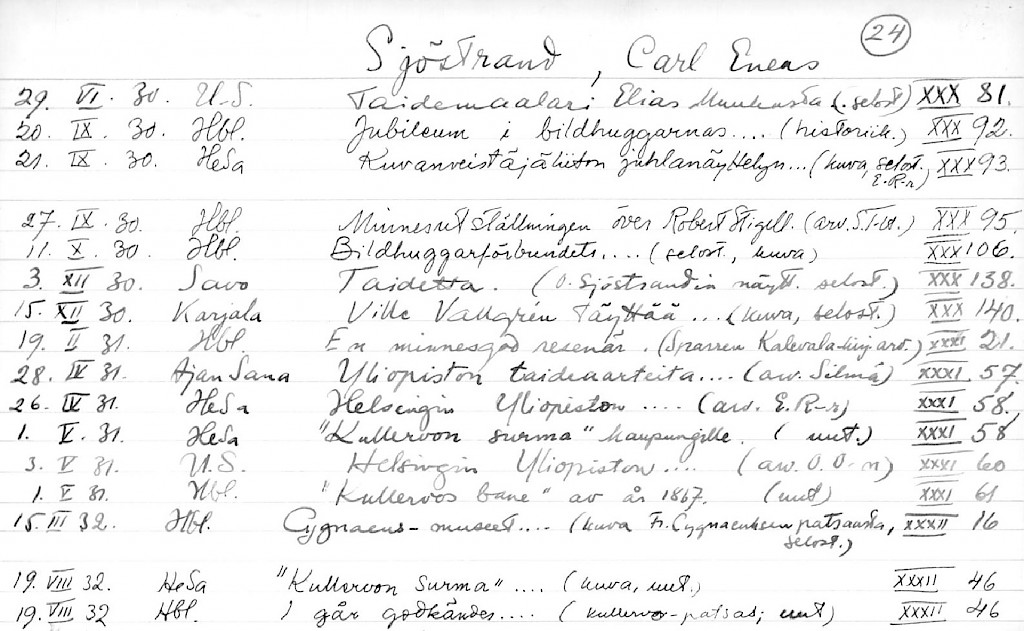 24
Sjöstrand, Carl Eneas
29. VI. 30. U-S. Taidemaalari Elias Muukasta (. selost) XXX 81.
20. IX. 30. Hbl. Jubileum i bildhuggarnas .... (historiik.) XXX 92.
21. IX. 30. HeSa Kuvanveistäjäliiton juhlanäyttelyn... (kuva, selost. XXX 93.
E.R-r)
27. IX. 30. Hbl. Minnesutställningen över Robert Stigell. (arv. S.T-st.) XXX 95.
11. X. 30. Hbl. Bildhuggarförbundets.... (selost., kuva) XXX 106.
3. XII 30. Savo Taidetta. (O. Sjöstrandin näytt. selost.) XXX 138.
15. XII 30. Karjala Ville Vallgrén täyttää ... (kuva, selost.) XXX 140.
19. II 31. Hbl. En minnesgod resenär. (Sparren Kalevala-kirj. arv.) XXXI 21.
28. IV 31. Ajan Sana Yliopiston taideaarteita.... (arv. Silmä) XXXI 57.
26. IV 31. HeSa Helsingin Yliopiston .... (arv. E.R-r) XXXI 58.
1. V. 31. HeSa "Kullervon surma" kaupungille. (uut.) XXXI 58
3. V 31. U.S. Helsingin Yliopiston .... (arv. O.O-n) XXXI 60
1. V 31. Hbl. "Kullervos bane" av år 1867. (uut) XXXI 61
15. III 32. Hbl. Cygnaeus-museet.... (kuva Fr. Cygnaeuksen patsaasta, XXXII 16
selost.)
19. VIII 32. HeSa "Kullervon Surma".... (kuva, uut.) XXXII 46
19. VIII 32 Hbl. I går godkändes.... (kullervo-patsas; uut) XXXII 46